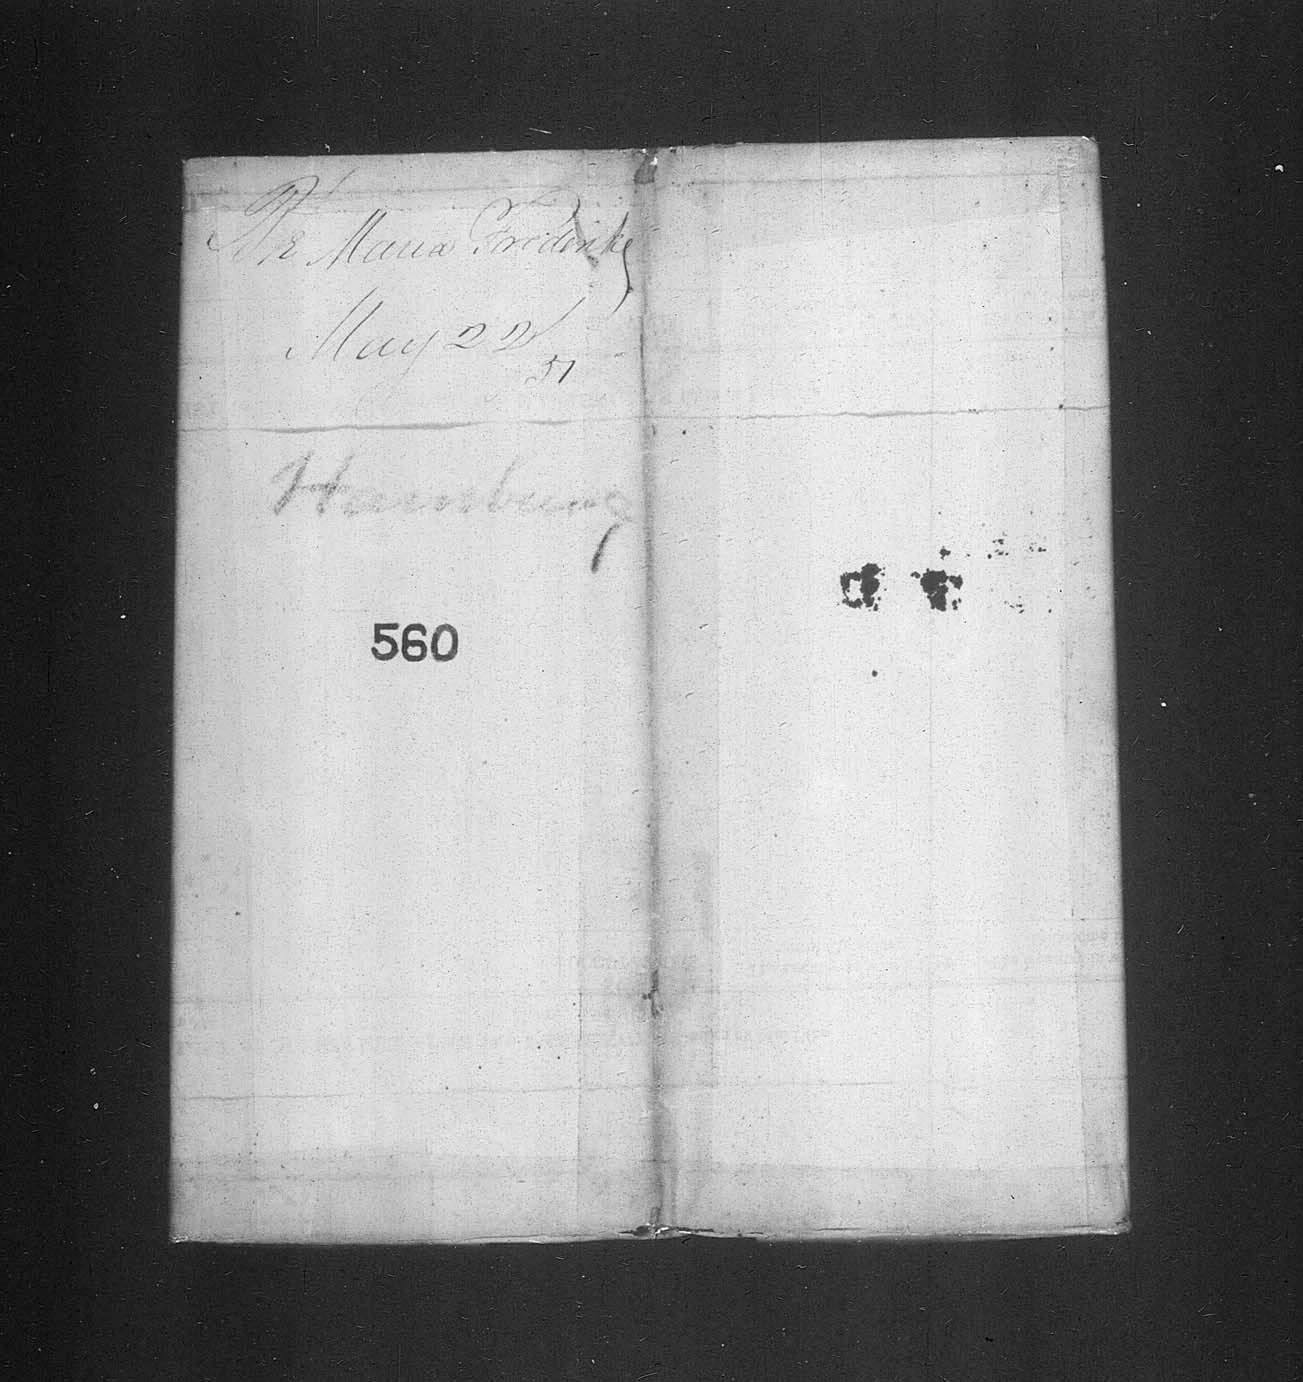 Maria Frederike
May 22
51
Hamburg
560